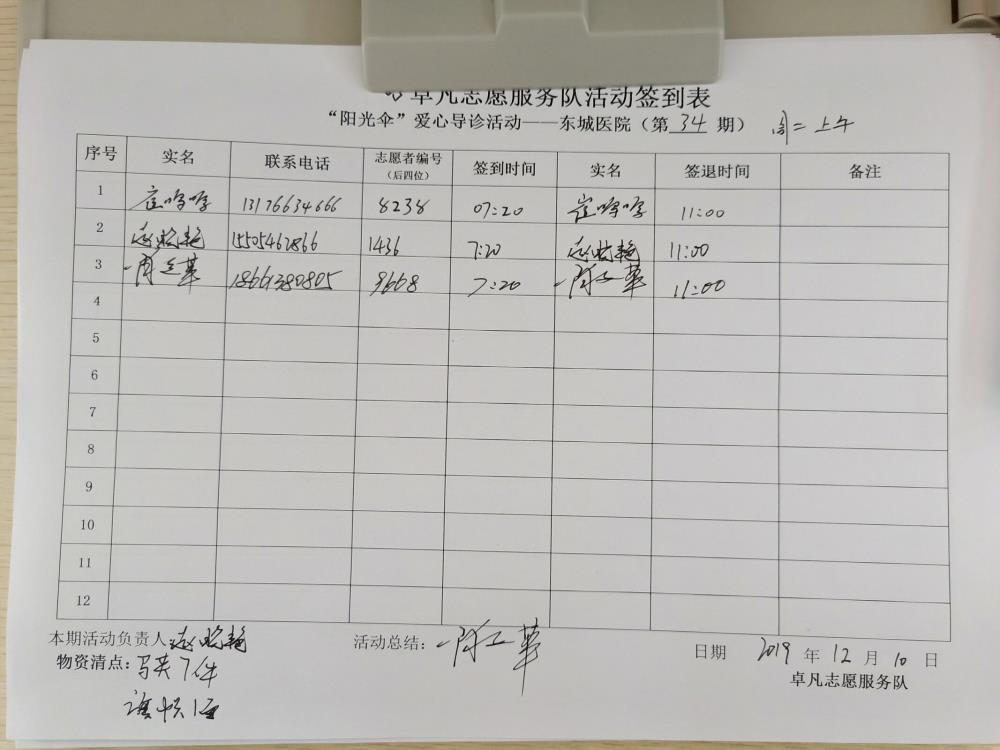 卓凡志愿服务队活动签到表
“阳光伞”爱心导诊活动——东城医院（第 34 期） 周二上午
序号 实名 联系电话 志愿者编号（后四位） 签到时间 实名 签退时间 备注
1 崔 13176634666 8238 07:20 崔 11:00
2 赵艳艳 15505462866 1436 7:20 赵艳艳 11:00
3 18661380805 9668 7:20 11:00
4
5
6
7
8
9
10
11
12
本期活动负责人 赵艳艳 活动总结： 日期 2019 年 12 月 10 日
物资清点：马夹7件 卓凡志愿服务队
旗帜1面